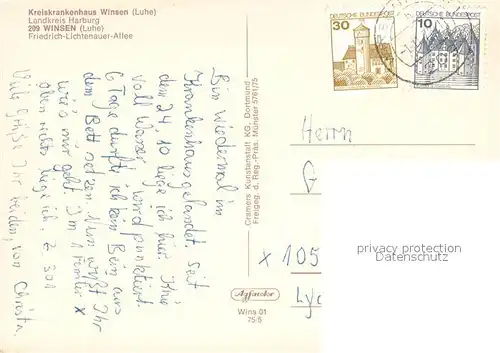 Kreiskrankenhaus Winsen (Luhe)
Landkreis Harburg
209 WINSEN (Luhe)
Friedrich-Lichtenauer-Allee
Bin wiedermal im
Krankenhaus gelandet. Seit
dem 24.10 liege ich hier. Knie
voll Wasser, wird punktiert.
6 Tage durfte ich kein Bein aus
dem Bett setzen. Nun wißt Ihr
wie's mir geht. Im 1 Fenster X
oben rechts liege ich. Z. 301
Viele Grüße Ihr beiden, von Christa.
Cramers Kunstanstalt KG, Dortmund
Freigeg. d. Reg.-Präs. Münster 5761/75
Agfacolor
Wins 01
75/5
DEUTSCHE BUNDESPOST
30
DEUTSCHE BUNDESPOST
10
Herrn
G
x 105
Lyc
privacy protection
Datenschutz